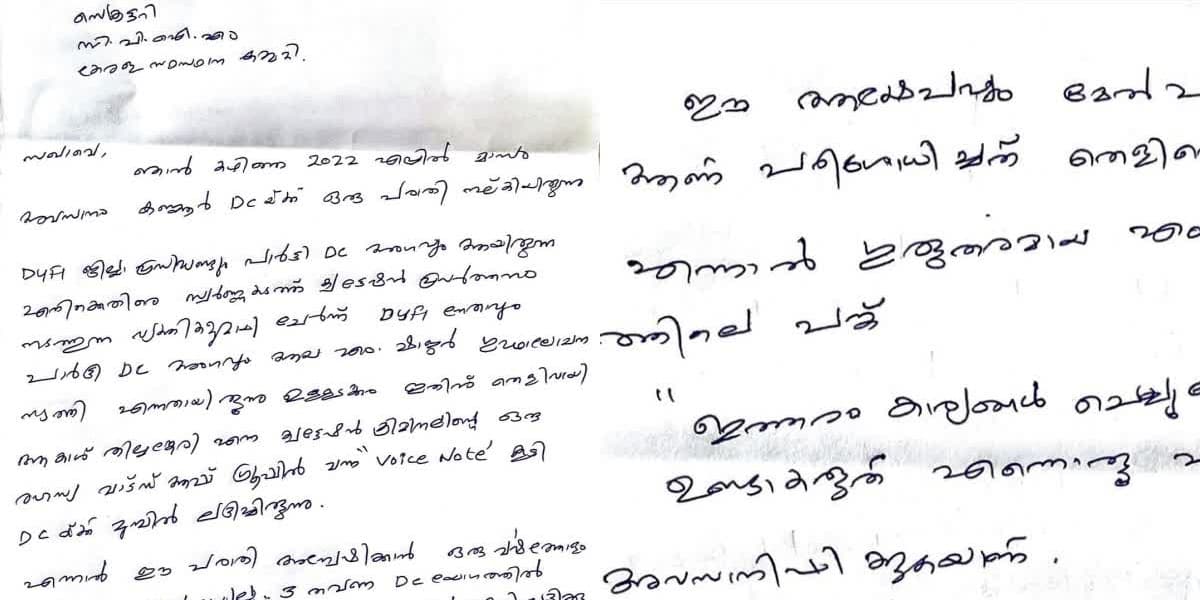 സെക്രട്ടറി
സി.പി.ഐ.എം
കേരള സംസ്ഥാന കമ്മറ്റി.
സഖാവെ,
ഞാൻ കഴിഞ്ഞ 2022 ഏപ്രിൽ മാസം
അവസാനം കണ്ണൂർ DC യ്ക്ക് ഒരു പരാതി നല്കിയിരുന്നു
DYFI ജില്ലാ പ്രസിഡണ്ടും പാർട്ടി DC അംഗവും ആയിരുന്ന
എനിക്കെതിരെ സ്വർണ്ണകടത്ത് ക്വട്ടേഷൻ പ്രവർത്തനം
നടത്തുന്ന വ്യക്തികളുമായി ചേർന്ന് DYFI നേതാവും
പാർട്ടി DC അംഗവും ആയ എം. ഷാജർ ഗൂഢാലോചന
നടത്തി എന്നതായിരുന്നു ഉള്ളടക്കം ഇതിന് തെളിവായി
ആകാശ് തില്ലങ്കേരി എന്ന ക്വട്ടേഷൻ ക്രിമിനലിന്റെ ഒരു
രഹസ്യ വാട്സ് ആപ്പ് ഗ്രൂപ്പിൽ വന്ന "Voice Note' കൂടി
DC യ്ക്ക് മുമ്പിൽ ലഭിച്ചിരുന്നു.
എന്നാൽ ഈ പരാതി അന്വേഷിക്കാൻ ഒരു വർഷത്തോളം
3 തവണ DC യോഗത്തിൽ
ഈ ആക്ഷേപവും മേൽ
ആണ് പരിശോധിച്ചത് തെളിവ
എന്നാൽ ഗുരുതരമായ എം
ത്തിലെ പങ്ക്
"ഇത്തരം കാര്യങ്ങൾ ചെയ്യു
ഉണ്ടാകരുത് എന്നൊരു
അവസാനിപ്പിക്കുകയാണ്.